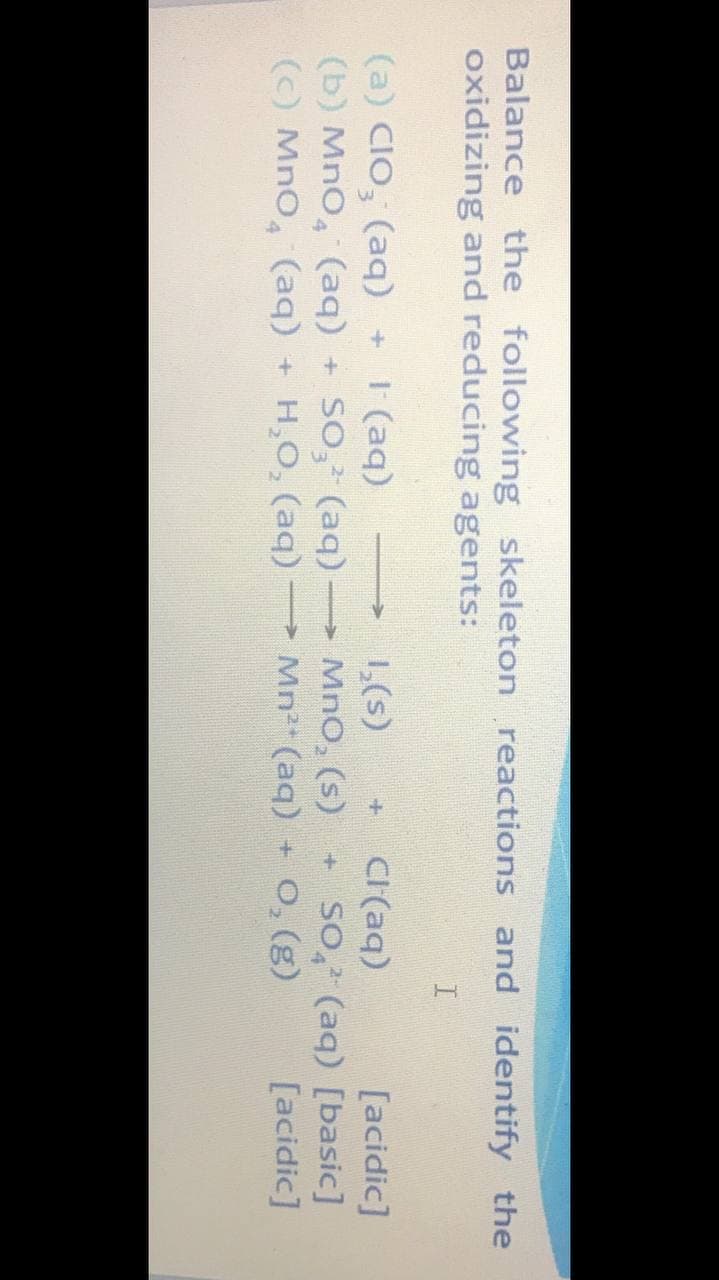 Balance the following skeleton reactions and identify the
oxidizing and reducing agents:
(a) ClO₃⁻ (aq) + I⁻ (aq) ⟶ I₂(s) + Cl⁻(aq) [acidic]
(b) MnO₄⁻ (aq) + SO₃²⁻ (aq) ⟶ MnO₂ (s) + SO₄²⁻ (aq) [basic]
(c) MnO₄⁻ (aq) + H₂O₂ (aq) ⟶ Mn²⁺ (aq) + O₂ (g) [acidic]